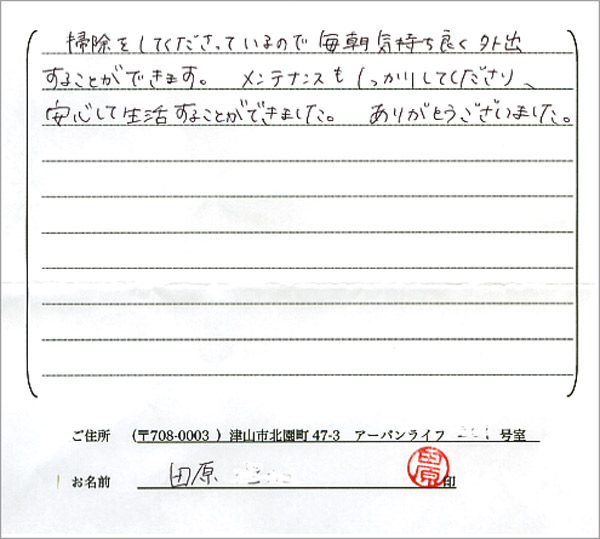 掃除をしてくださっているので毎朝気持ち良く外出
することができます。 メンテナンスもしっかりしてくださり、
安心して生活することができました。 ありがとうございました。
ご住所 (〒708-0003 ) 津山市北園町 47-3 アーバンライフ 号室
お名前 田原 田原 印